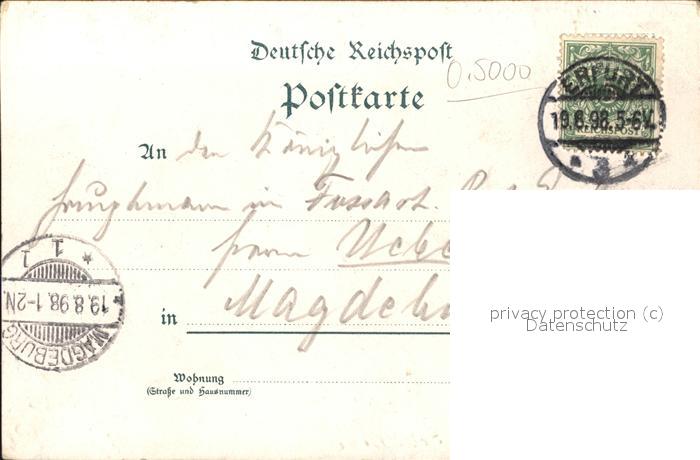 Deutsche Reichspost
0.5000
Postkarte
ERFURT
19.8.98.5-6V.
REICHSPOST
An den Königlichen
in Fussart.
Herrn Uebe
in Magdebu
MAGDEBURG
19.8.98.1-2N
1
Wohnung
(Straße und Hausnummer)
privacy protection (c)
Datenschutz